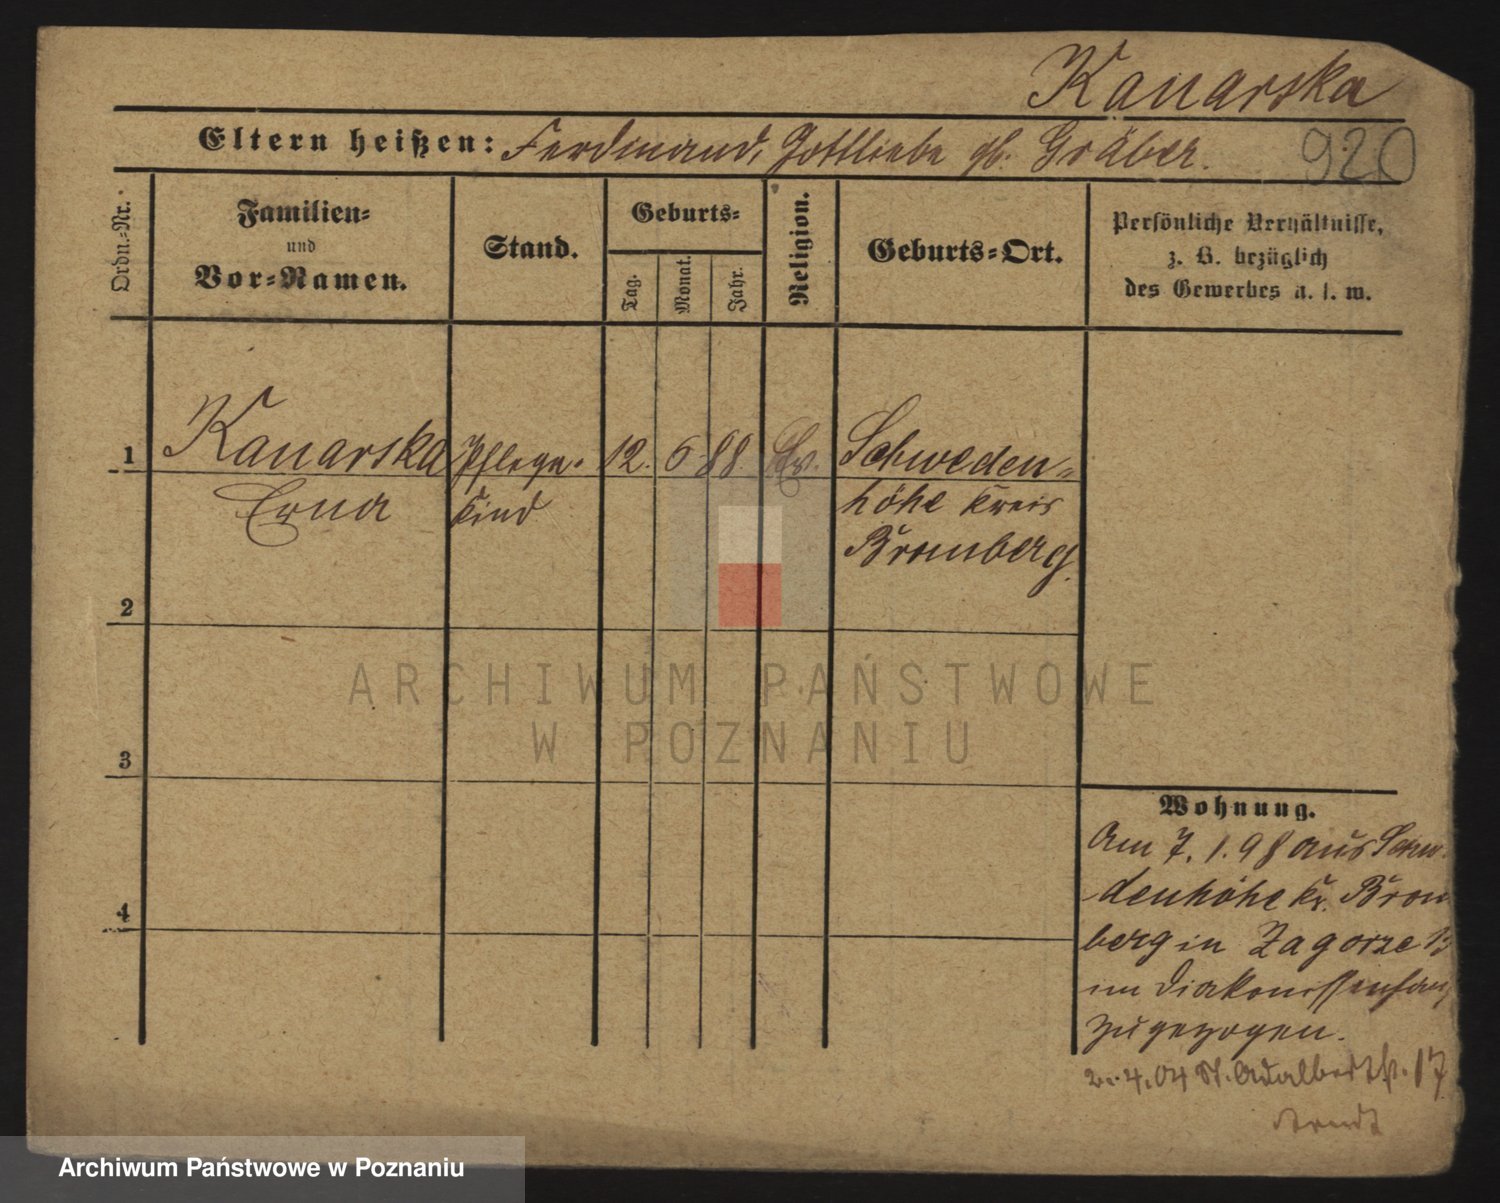 Kanarska
Eltern heißen: Ferdinand, Gottliebe gb. Gräber.
920
Ordn.-Nr.
Familien-
und
Vor-Namen.
Stand.
Geburts-
Tag.
Monat.
Jahr.
Religion.
Geburts-Ort.
Persönliche Verhältnisse,
z. B. bezüglich
des Gewerbes u. s. w.
1
Kanarska
Erna
Pflege-
kind
12. 6 88. Ev.
Schweden-
höhe Kreis
Bromberg.
2
3
4
Wohnung.
Am 7. 1. 98 aus Schwe-
denhöhe Kr. Brom
berg in Zagorze
im Diakonissenhaus
zugezogen.
4.04 St. Adalbertstr. 17
Arndt
ARCHIWUM PAŃSTWOWE
W POZNANIU
Archiwum Państwowe w Poznaniu